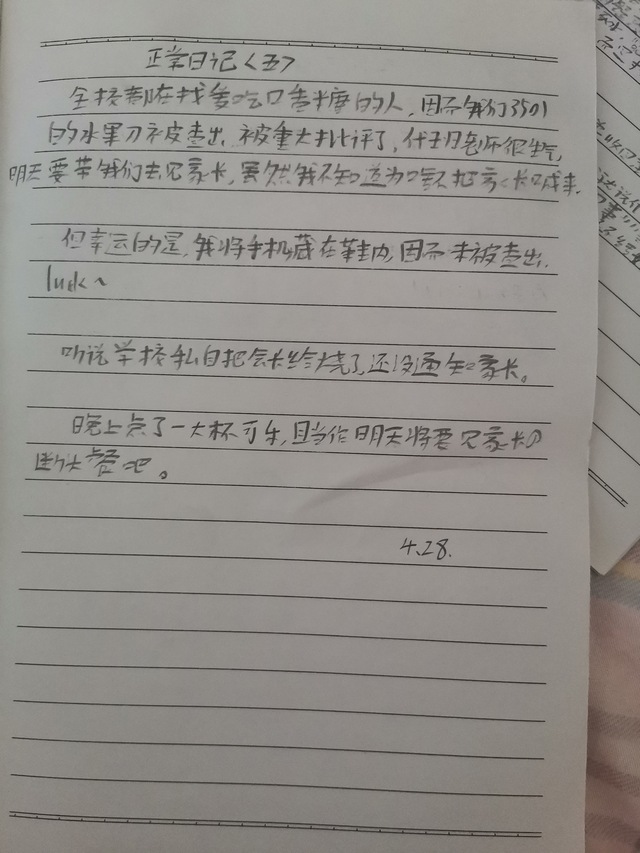 正常日记<五>
全校都在找爱吃口香糖的人，因而我们3501
的水果刀被查出，被重大批评了，代班老师很生气，
明天要带我们去见家长，虽然我不知道为啥不把家长喊来.
但幸运的是，我将手机藏在鞋内，因而未被查出，
luck~
听说学校私自把会长给烧了，还没通知家长。
晚上点了一大杯可乐，且当作明天将要见家长的
断头餐吧。
4.28.